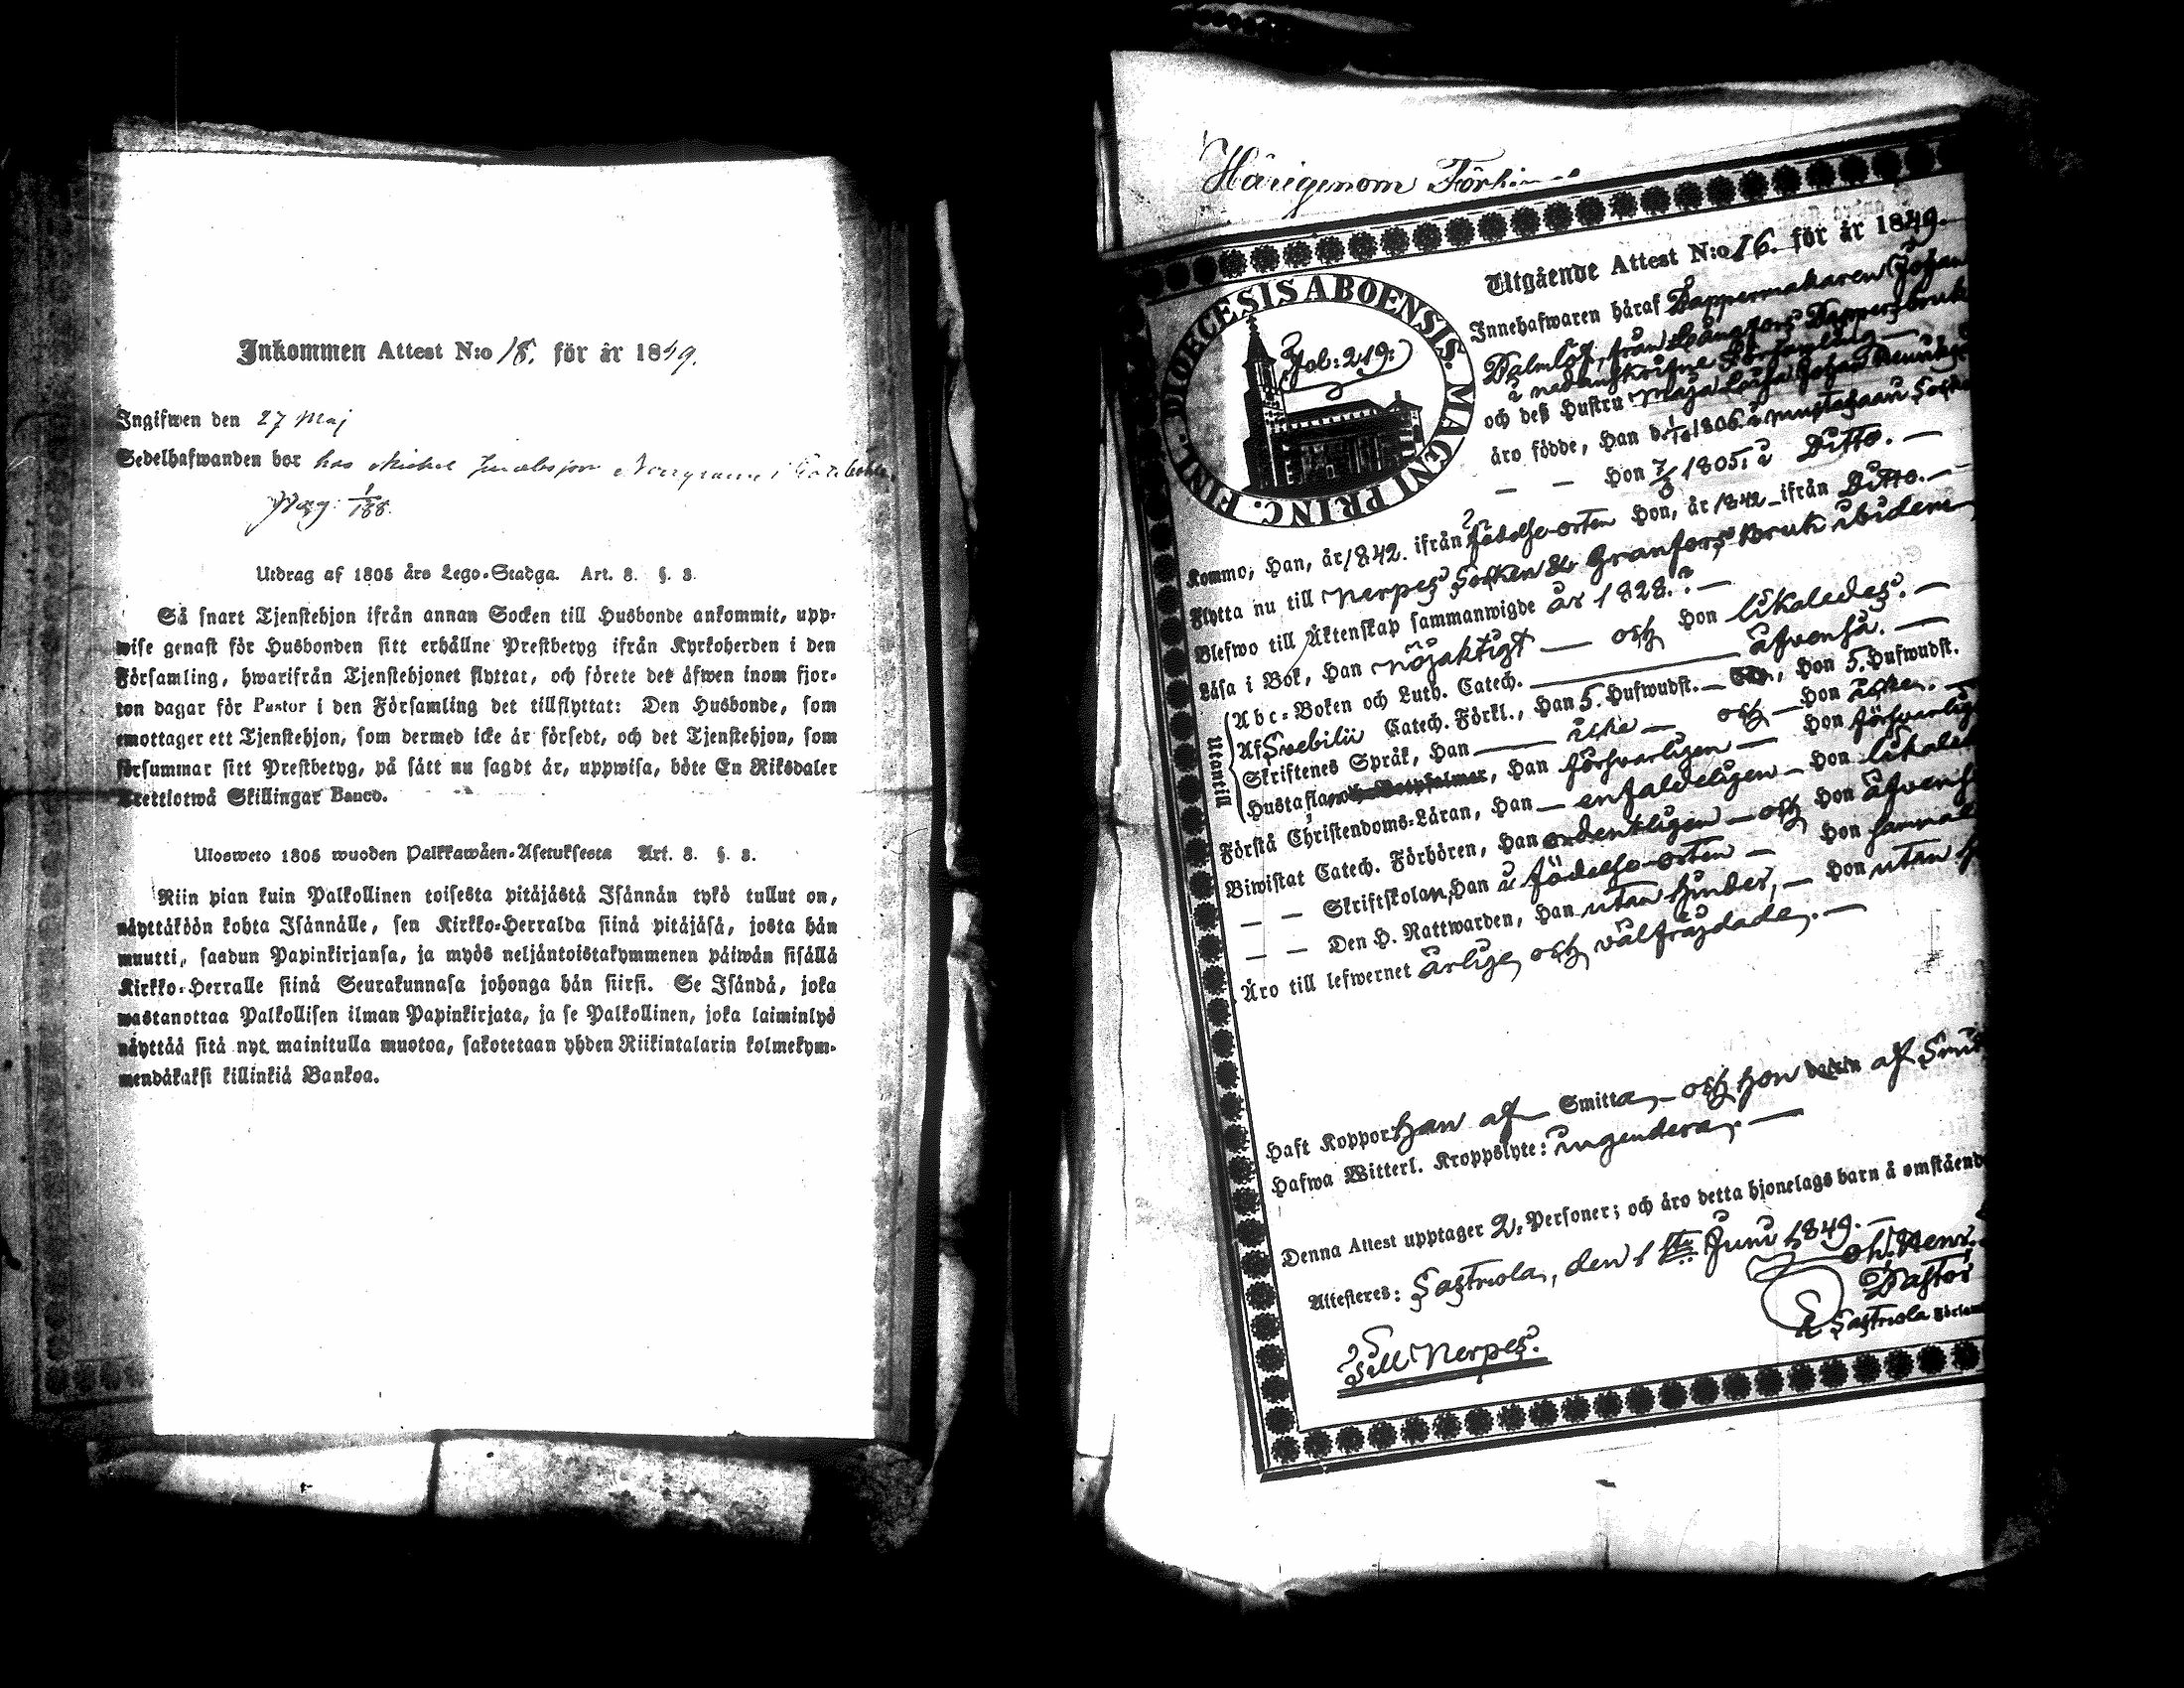 Inkommen Attest N:o 18. för år 1849.
Ingifwen den 27 Maj
Sedelhafwanden bor hos Michel
Pag. 1/188.
Utdrag af 1805 års Lego-Stadga. Art. 8. §. 3.
Så snart Tjenstehjon ifrån annan Socken till Husbonde ankommit, upp-
wise genast för Husbonden sitt erhållne Prestbetyg ifrån Kyrkoherden i den
Församling, hwarifrån Tjenstehjonet flyttat, och förete det åfwen inom fjor-
ton dagar för Pastor i den Församling det tillflyttat: Den Husbonde, som
emottager ett Tjenstehjon, som dermed icke är försedt, och det Tjenstehjon, som
försummar sitt Prestbetyg, på sått nu sagdt år, uppwisa, böte En Riksdaler
trettiotwå Skillingar Banco.
Ulosweto 1805 wuoden Palkkawåen-Asetuksesta Art. 8. §. 3.
Niin pian kuin Palkollinen toisesta pitåjåstå Isånnån tykö tullut on,
nåyttåköön kohta Isånnålle, sen Kirkko-Herralda siinå pitåjåså, josta hån
muutti, saadun Papinkirjansa, ja myös neljåntoistakymmenen påiwån sisållå
Kirkko-Herralle siinå Seurakunnasa johonga hån siirsi. Se Isåndå, joka
wastanottaa Palkollisen ilman Papinkirjata, ja se Palkollinen, joka laiminlyö
nåyttåå sitå nyt mainitulla muotoa, sakotetaan yhden Riikintalarin kolmekym-
mendåkaksi killinkiå Bankoa.
Härigenom
DIOECESIS ABOENSIS. MAGNI PRINC. FINL.
Fol: 219:
Utgående Attest N:o 16. för år 1849.
Innehafwaren häraf Pappermakaren Johan
från Pappersbruk
i nedanskrifne Församling
och deß Hustru Maja Lovisa Johan
äro födde, Han d. 1/10 1806. i Mustasaari
— — Hon 7/6 1805. i Ditto. —
Kommo, Han, år 1842. ifrån Födelse-orten Hon, år 1842 ifrån Ditto. —
Flytta nu till Nerpes Socken & Granfors Bruk ibidem
Blefwo till Äktenskap sammanwigde år 1828. —
Läsa i Bok, Han nöjaktigt — och Hon likaledes. —
Utantill
Abc-Boken och Luth. Catech. — äfvenså. —
Af Svebilii Catech. Förkl., Han 5. Hufwudst. — Hon 5. Hufwudst.
Skriftenes Språk, Han — icke — och — Hon icke. —
Hustaflan, Han försvarligen — Hon försvarlig
Förstå Christendoms-Läran, Han — enfaldeligen — Hon likaled
Biwistat Catech. Förhören, Han ordentligen — och Hon äfvens
— — Skriftskolan, Han i födelse-orten — Hon sammal
— — Den H. Nattwarden, Han utan hinder, — Hon utan h
Äro till lefwernet ärlige och välfräjdade. —
Haft Koppor Han af — Smitta, och Hon af Smit
Hafwa Witterl. Kroppslyte: ingendera. —
Denna Attest upptager 2. Personer; och äro detta hjonelags barn å omståend
Attesteres: Sastmola, den 1 sta Juni 1849. —
Joh. Henr.
Pastor
i Sastmola Församl
Till Nerpes.